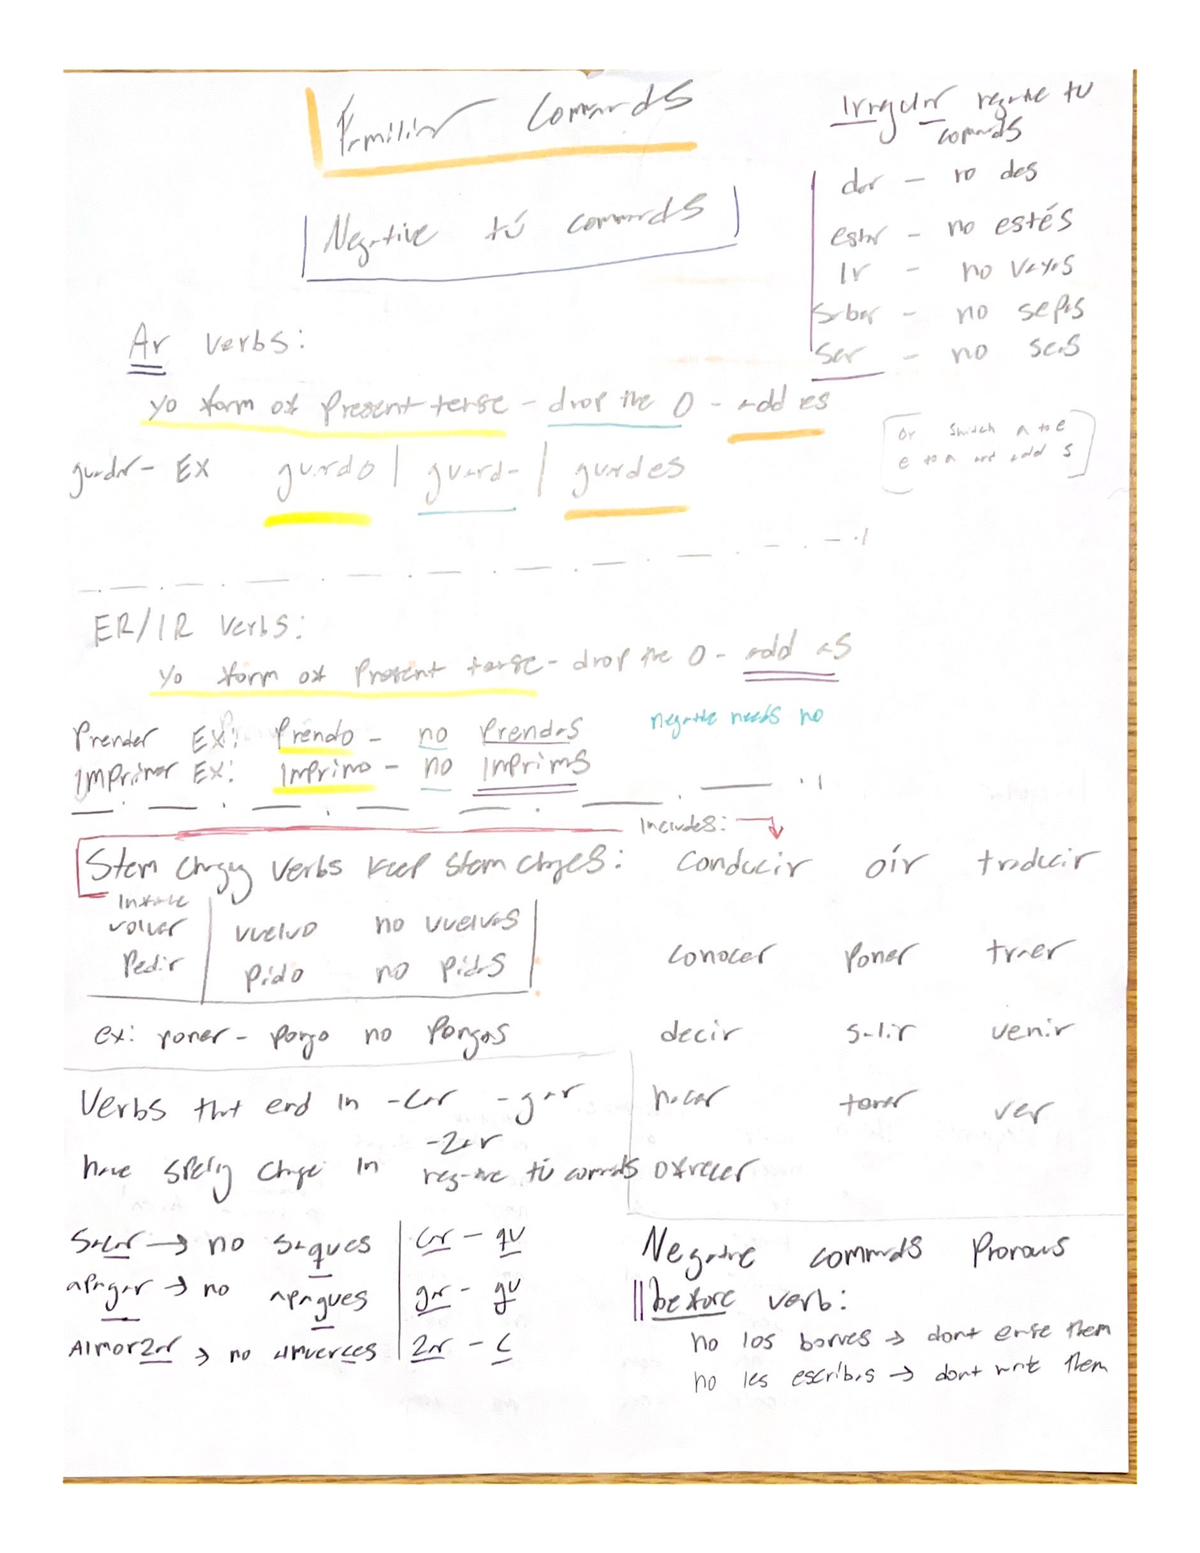 Familiar Commands
Negative tú commands
Irregular negative tu
commands
dar - no des
estar - no estés
Ir - no vayas
saber - no sepas
Ser - no seas
Or switch a to e
e to a and add s
Ar verbs:
yo form of Present tense - drop the O - add es
guardar - EX guardo | guard- | guardes
ER/IR verbs:
yo form of Present tense - drop the O - add as
negative needs no
Prender EX: Prendo - no Prendas
Imprimir EX: Imprimo - no Imprimas
Includes:
Stem changing verbs keep stem changes:
Infinitive
volver vuelvo no vuelvas
Pedir Pido no pidas
ex: poner - pongo no Pongas
conducir oír traducir
conocer Poner traer
decir salir venir
hacer tener ver
ofrecer
Verbs that end in -car -gar
-zar
have spelling change in negative tú commands
Sacar → no saques
apagar → no apagues
Almorzar → no almuerces
car - qu
gar - gu
zar - c
Negative commands Pronouns
before verb:
no los borres → dont erase them
no les escribas → dont write them